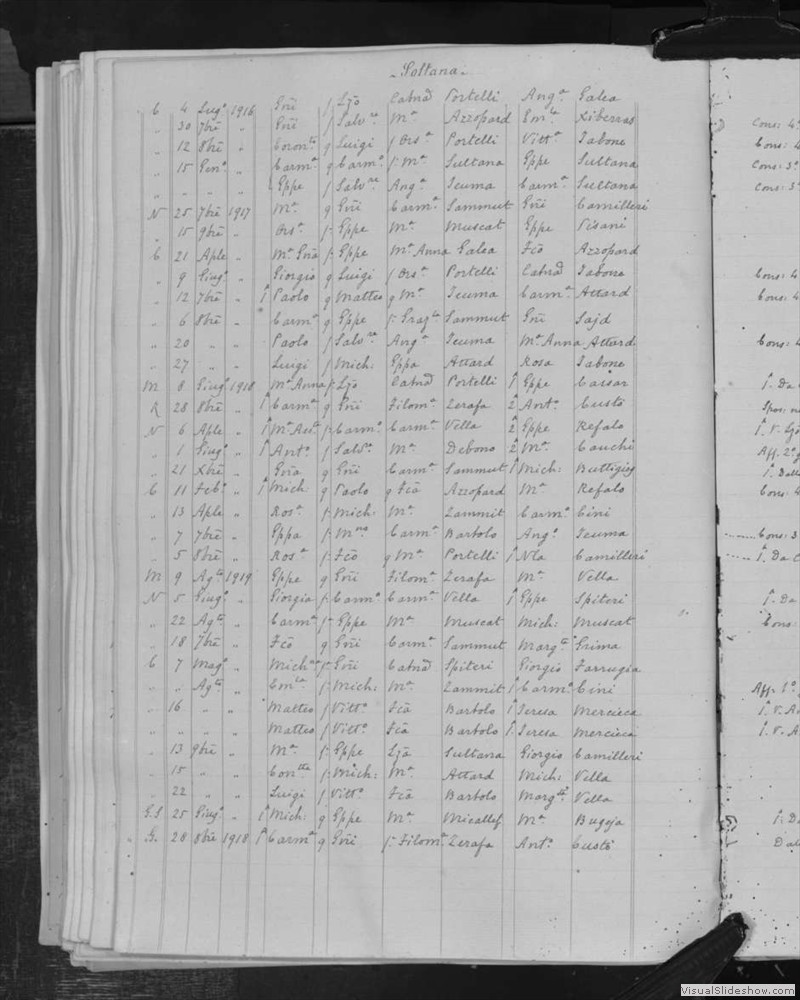 - Soltana -
C 4 Lugº 1916 Gñi f Ljo Catnā Portelli Angª Galea
" 30 7bre " Gñi f Salvre Mª Azzopard Emle Xiberras
" 12 8bre " Coronto q Luigi f Orsª Portelli Vittª Tabone
" 15 Genº " Carmª q Carmº f Mª Sultana Eppe Sultana
" " " " Eppe f Salvre Angª Teuma Carmª Sultana
N 25 7bre 1917 Mª q Gñi Carmª Sammut Gñi Camilleri
" 15 9bre " Orsª f Eppe Mª Muscat Eppe Pisani
C 21 Aple " Mª Gña f Eppe Mª Anna Galea Fcō Azzopard
" 9 Giugº " Giorgio q Luigi f Orsª Portelli Catnā Tabone
" 12 7bre " 1 Paolo q Matteo q Mª Teuma Carmª Attard
" 6 8bre " Carmª q Eppe f Grazla Sammut Gñi Sajd
" 20 " " Paolo f Salvre Angª Teuma Mª Anna Attard
" 27 " " Luigi f Mich: Eppa Attard Rosa Tabone
M 8 Giugº 1918 Mª Anna f Ljo Catnā Portelli 1 Eppe Caisar
R 28 8bre " 1 Carmª q Gñi Filomª Zerafa 2 Antº Custò
N 6 Aple " 1 Mª Assª f Carmº Carmª Vella 2 Eppe Refalo
" 1 Giugº " 1 Antº f Salvre Mª Debono 2 Mª Cauchi
" 21 Xbre " Gña q Gñi Carmª Sammut 1 Mich: Buttigieg
C 11 Febº " 1 Mich q Paolo q Fcā Azzopard Mª Refalo
" 13 Aple " Rosª f Mich: Mª Zammit Carmº Cini
" 7 7bre " Eppa f Mno Carmª Bartolo Angº Teuma
" 5 8bre " Rosª f Fcō q Mª Portelli 1 Nla Camilleri
M 9 Agto 1919 Eppe q Gñi Filomª Zerafa Mª Vella
N 5 Giugº " Giorgia f Carmº Carmª Vella 1 Eppe Spiteri
" 22 Agto " Carmª f Eppe Mª Muscat Mich: Muscat
" 18 7bre " Fcō q Gñi Carmª Sammut Margta Grima
C 7 Magº " Michna f Gñi Catnā Spiteri Giorgio Farrugia
" " Agto " Conta f Mich: Mª Zammit 1 Carmº Cini
" 16 " " Matteo f Vittº Fcā Bartolo 1 Teresa Mercieca
Matteo f Vittº Fcā Bartolo 1 Teresa Mercieca
" 13 9bre " Mª f Eppe Ljā Sultana Giorgio Camilleri
" 15 " " Contta f Mich: Mª Attard Mich: Vella
" 22 " " Luigi f Vittº Fcā Bartolo Margta Vella
G.S 25 Giugº " 1 Mich: q Eppe Mª Micallef Mª Bugeja
G. 28 8bre 1918 1 Carmª q Gñi f Filomª Zerafa Antº Custò
Cons: 4º
Cons: 4
Cons: 3º
Cons: 3
Cons: 4
Cons: 4
Cons: 4
1. Da
1. V. Ljo
Aff. 2º
Cons: 4
Cons: 3
1. Da C
1. Da
Cons:
Aff. 1º
1. V. A
1. V. A
1. Da
VisualSlideshow.com